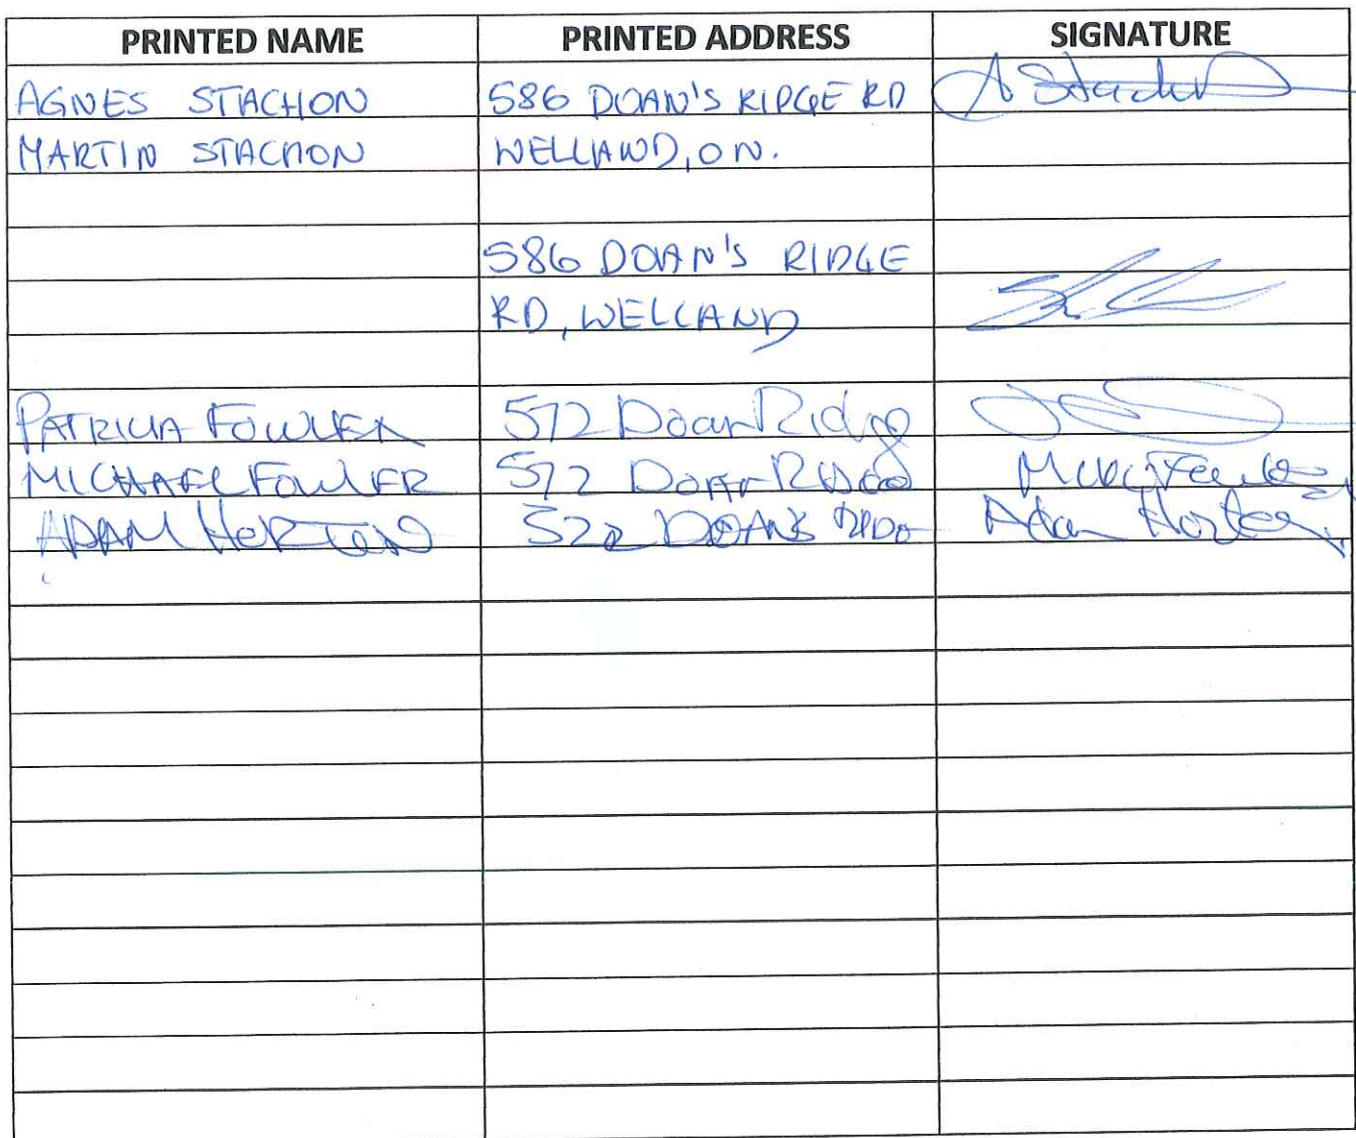 PRINTED NAME PRINTED ADDRESS SIGNATURE
AGNES STACHON 586 DOAN'S RIDGE RD A Stachon
MARTIN STACHON WELLAND, ON.
586 DOAN'S RIDGE
RD, WELLAND
PATRICIA FOWLER 572 Doan Ridge
MICHAEL FOWLER 572 Doan Ridge
ADAM HORTON 522 DOANS Adam Horton